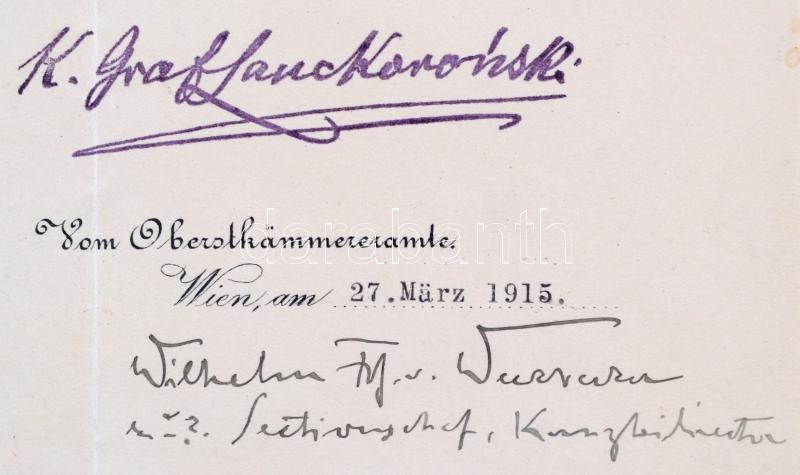 K. Graf Lanckoroński
Vom Oberstkämmereramte.
darabanth
Wien, am 27. März 1915.
Wilhelm Frh. v.
Sectionschef, Kanzleidirector